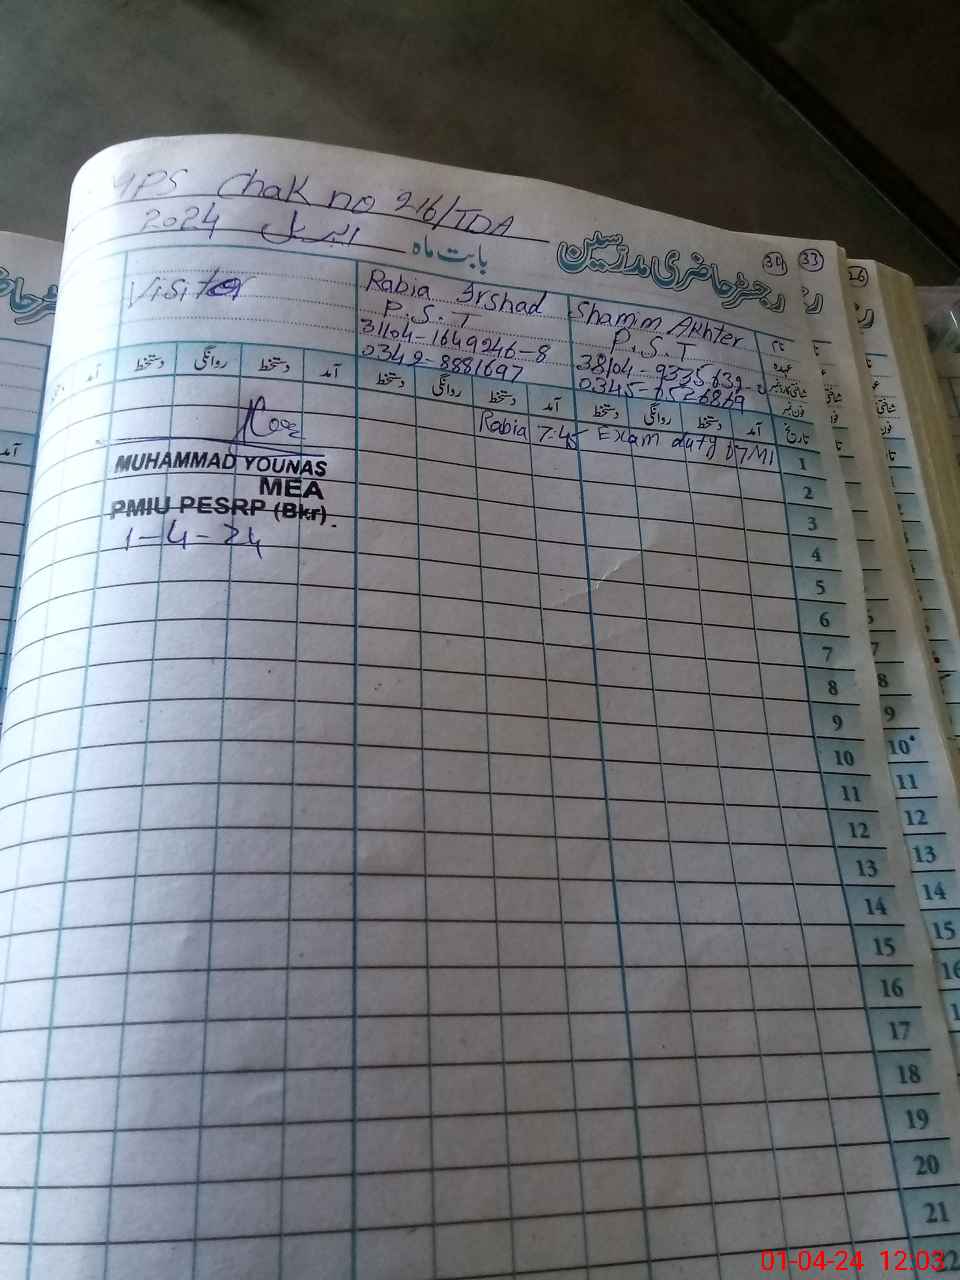 GPS Chak no 216/TDA
رجسٹر حاضری مدرسین بابت ماہ اپریل 2024
34 33 26
Shamim Akhter
P.S.T
Rabia Irshad
P.S.T
0342-8881697
Visitor
نام
عہدہ
شناختی کارڈ نمبر
فون نمبر
تاریخ آمد دستخط روانگی دستخط آمد دستخط روانگی دستخط آمد دستخط روانگی دستخط آمد
1 Exam duty Rabia 7:45
MUHAMMAD YOUNAS
MEA
PMIU PESRP (Bkr)
1-4-24
2
3
4
5
6
7
8
9
10
11
12
13
14
15
16
17
18
19
20
21
7
8
9
10
11
12
13
14
15
16
01-04-24 12:03